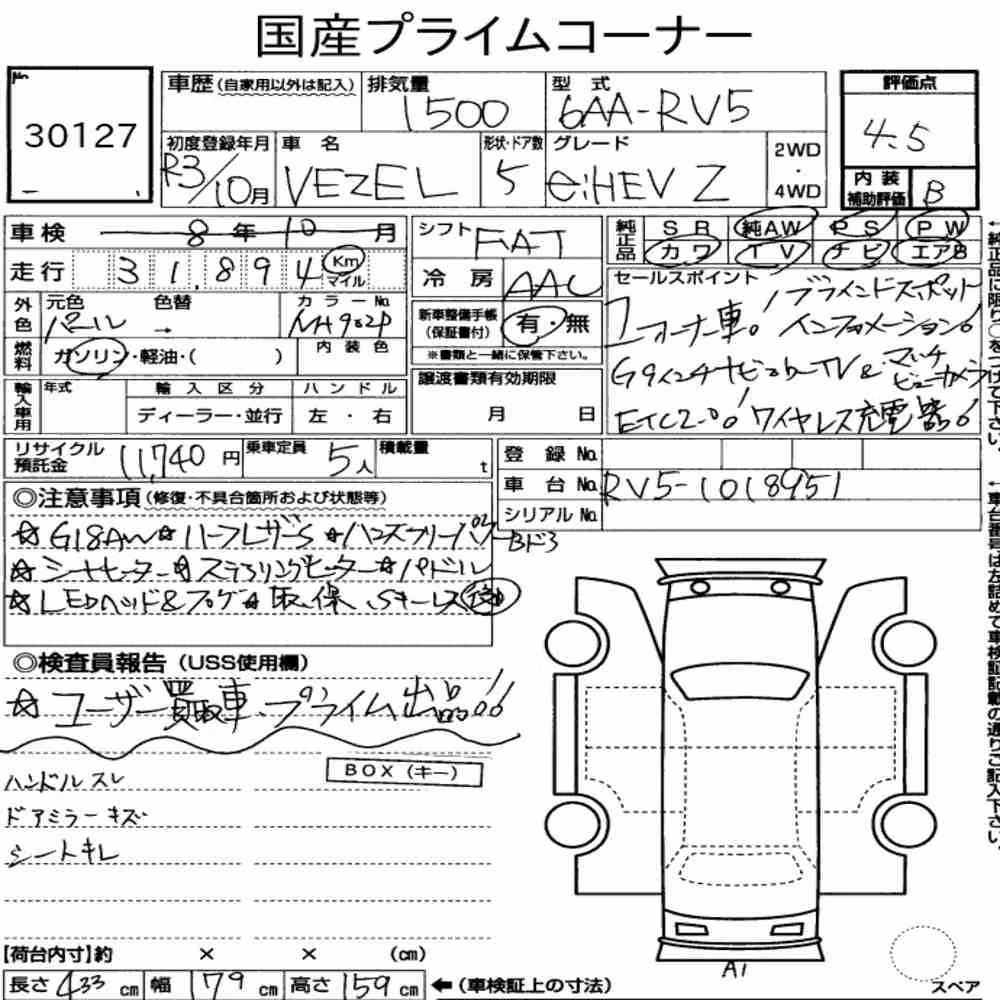 国産プライムコーナー
No.
30127
車歴(自家用以外は記入) 排気量 1500 型式 6AA-RV5
初度登録年月 R3/10月 車名 VEZEL 形状・ドア数 5 グレード e:HEV Z 2WD・4WD
評価点 4.5
内装補助評価 B
車検 8年10月
走行 31,894 Km マイル
外色 元色 パール 色替 → カラーNo. NH902P
燃料 ガソリン・軽油・( ) 内装色
輸入車用 年式 輸入区分 ハンドル
ディーラー・並行 左・右
シフト FAT
冷房 AAC
新車整備手帳(保証書付) 有・無
※書類と一緒に保管下さい。
譲渡書類有効期限
月 日
純正品 SR 純AW PS PW
カワ TV ナビ エアB
セールスポイント
ワンオーナー車! ブラインドスポット
インフォメーション!
G9インチナビ TV& マルチビューカメラ
ETC2.0! ワイヤレス充電器!
リサイクル預託金 11,740円 乗車定員 5人 積載量 t
登録No.
車台No. RV5-1018951
シリアルNo.
◎注意事項(修復・不具合箇所および状態等)
☆G18AW☆ハーフレザーS☆ハンズフリーパワーBドア
☆シートヒーター☆ステアリングヒーター☆パドル
☆LEDヘッド&フォグ☆取、保、Sキーレス
◎検査員報告(USS使用欄)
☆ユーザー買取車・プライム出品!!
BOX(キー)
ハンドルスレ
ドアミラーキズ
シートキレ
【荷台内寸】約 × × (cm)
長さ433cm 幅179cm 高さ159cm ←(車検証上の寸法)
A1
スペア
←純正品に限り○をつけて下さい。
←車台番号は左詰めで車検証記載の通りご記入下さい。